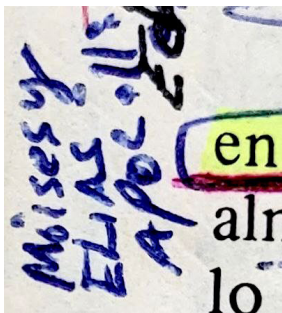 Moises y
ELIAS
Apoc. 11:
en
alm
lo